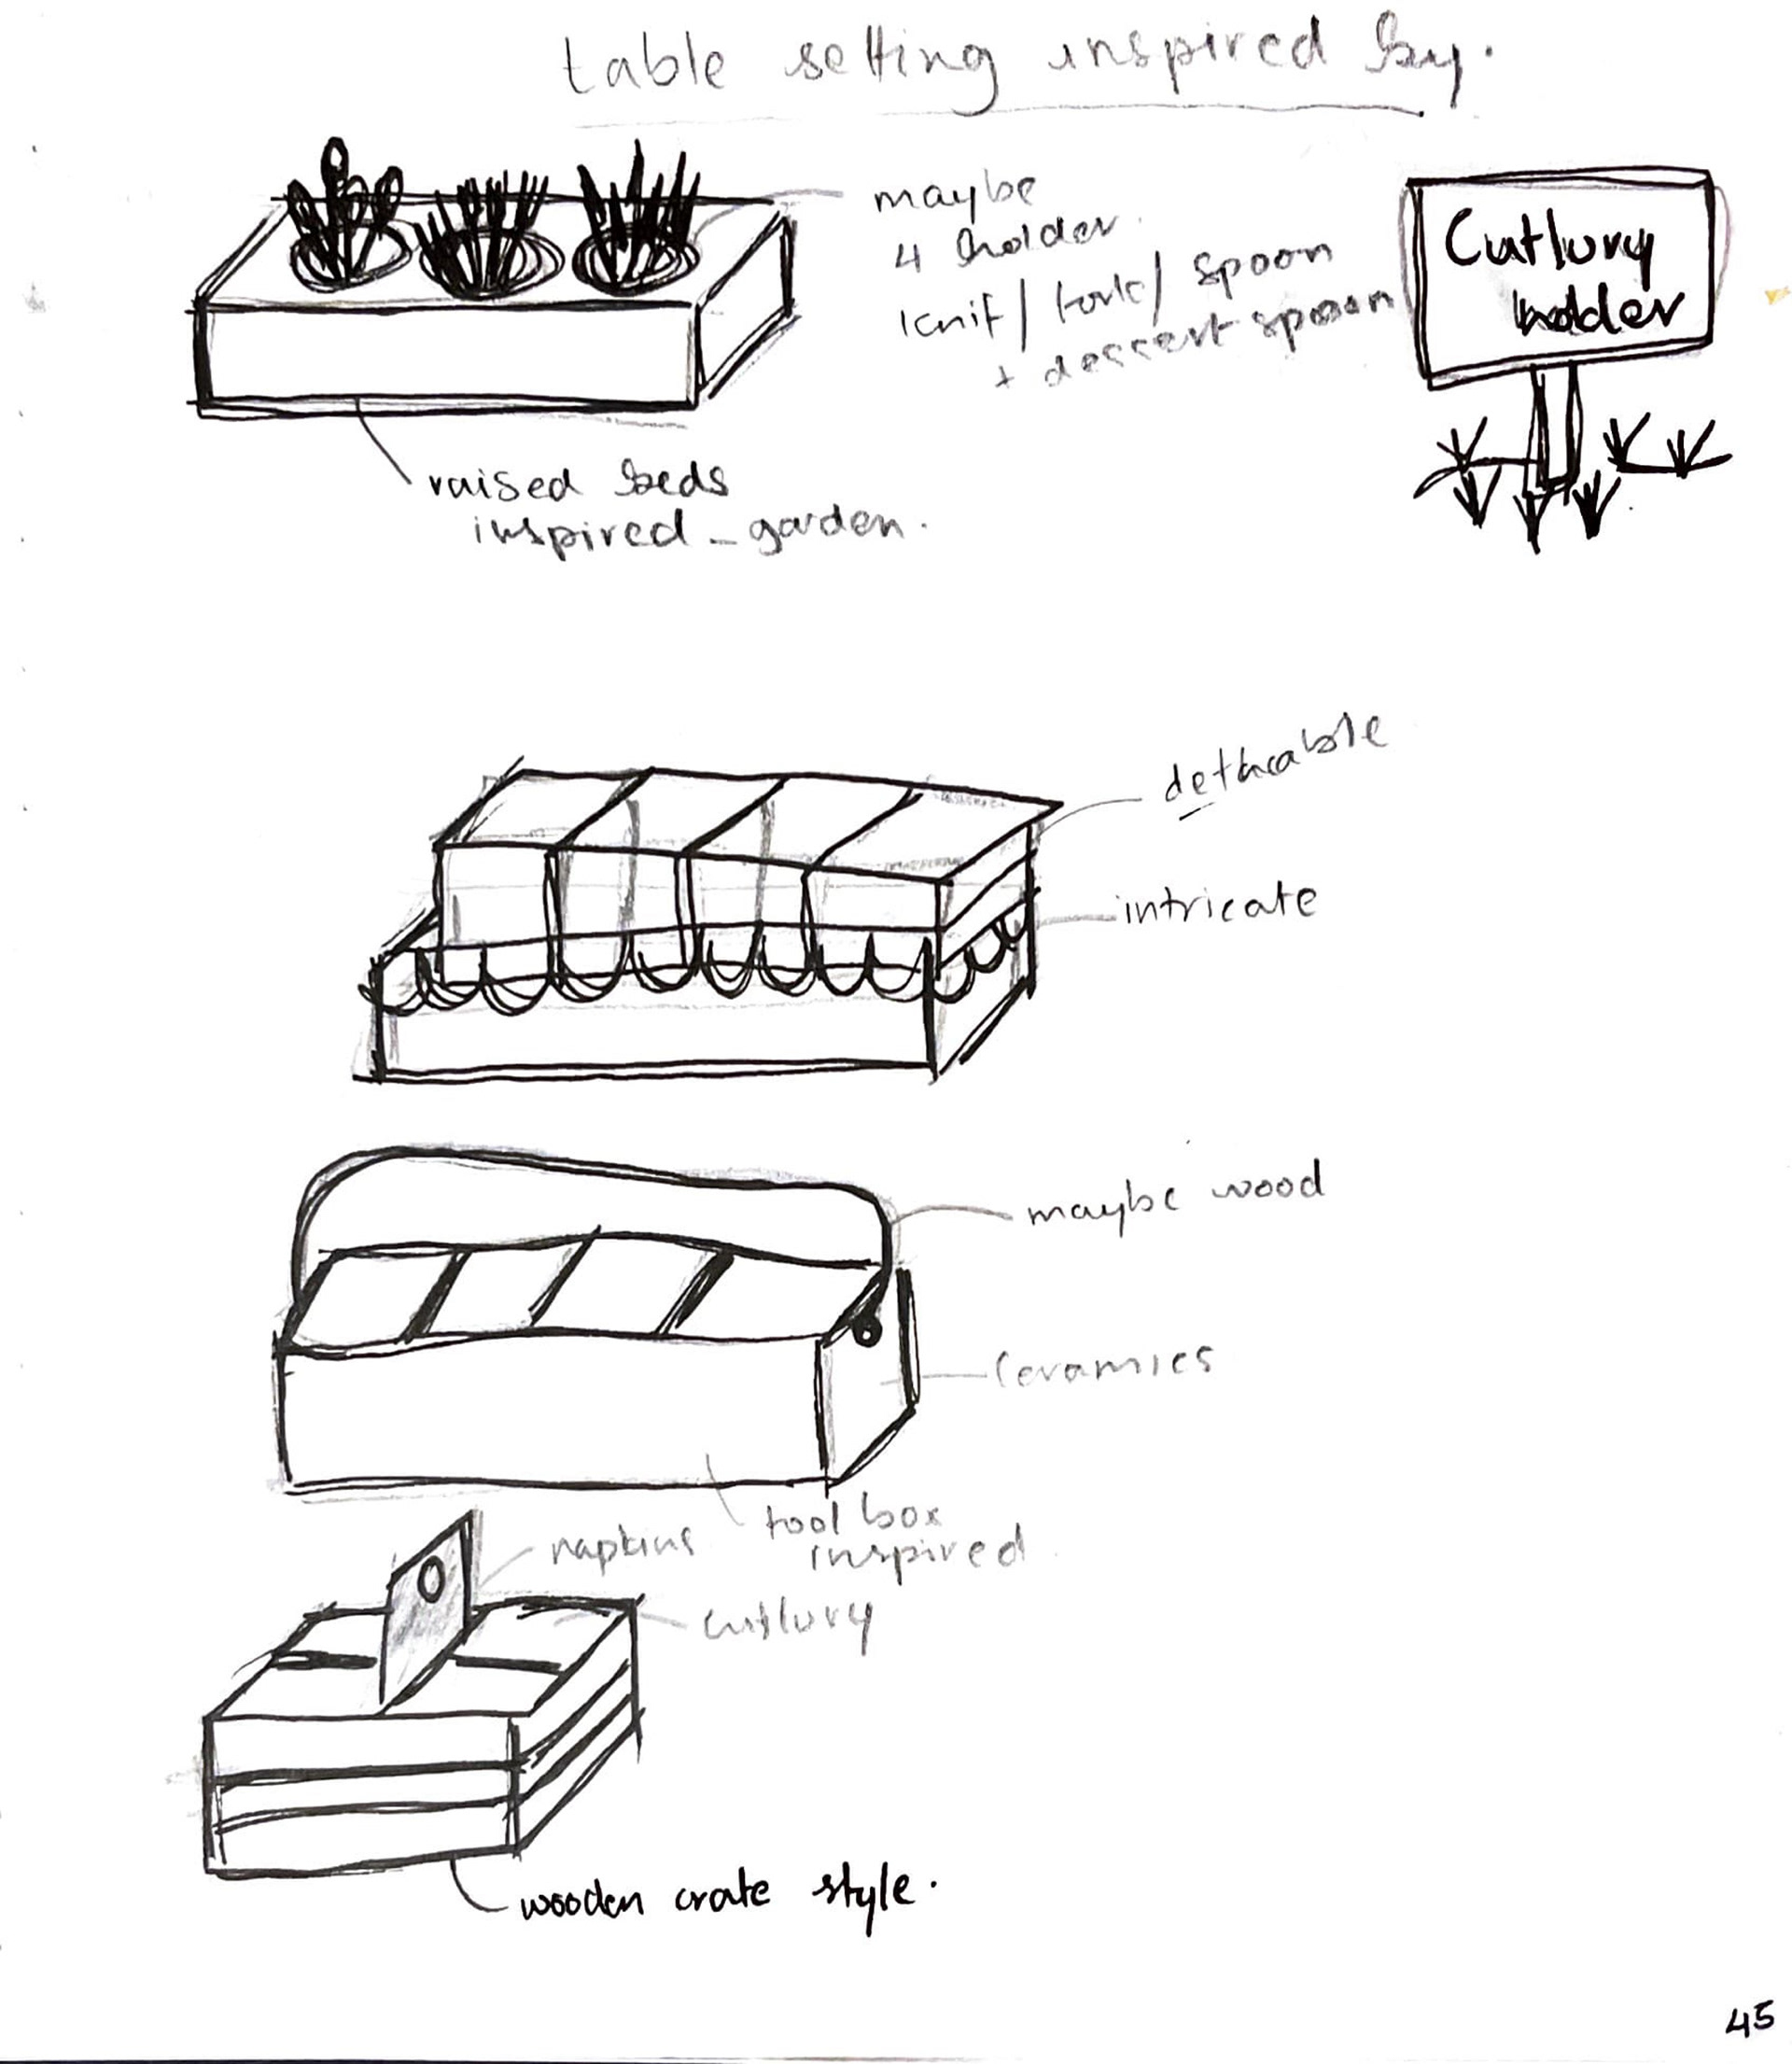 table setting inspired by.
maybe
4 holder.
knif / fork / spoon
+ dessert spoon
Cutlury
holder
raised beds
inspired - garden.
dethcable
intricate
maybe wood
Ceramics
tool box
inspired
napkins
cutlury
wooden crate style.
45